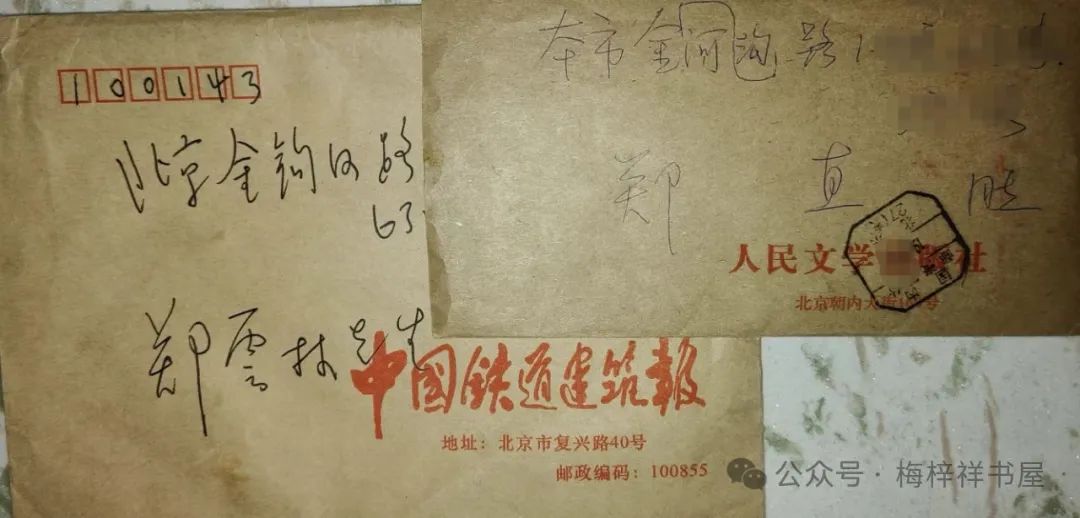 100143
北京金钩河路
63
郑云林先生
中国铁道建筑報
地址：北京市复兴路40号
邮政编码：100855
本市金河沟路
郑 直
人民文学 版社
北京朝内大街 号
公众号·梅梓祥书屋